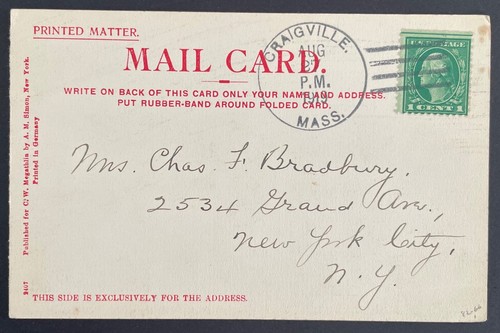 PRINTED MATTER.
MAIL CARD.
WRITE ON BACK OF THIS CARD ONLY YOUR NAME AND ADDRESS.
PUT RUBBER-BAND AROUND FOLDED CARD.
CRAIGVILLE.
AUG
P.M.
MASS.
U.S. POSTAGE
1 CENT 1
Mrs. Chas. F. Bradbury.
2534 Grand Ave.,
New York City,
N. Y.
THIS SIDE IS EXCLUSIVELY FOR THE ADDRESS.
Published for C. W. Megathlin by A. M. Simon, New York.
Printed in Germany